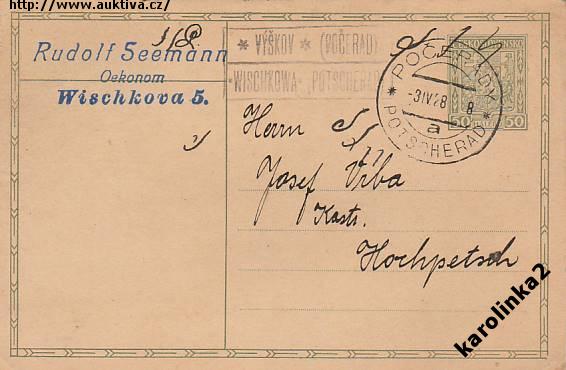 http://www.auktiva.cz/
Rudolf Seemann
Oekonom
Wischkova 5.
* VÝŠKOV * (POČERADY)
*WISCHKOWA* (POTSCHERAD)
* POČERADY *
POTSCHERAD
-3IV28 -8
a
ČESKOSLOVENSKÁ
50 50
Herrn
Josef Vrba
Kastr.
Hochpetsch
karolinka2